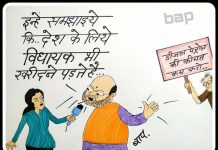 bap
इन्हें समझाइये
कि.. देश के लिये
विधायक भी
खरीदने पड़ते है..
डीजल पेट्रोल
की कीमत
कम करो..
बाप.